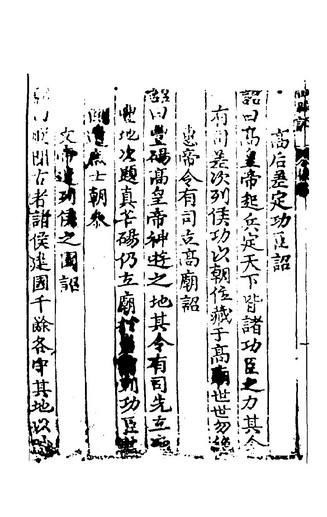 高后差定功臣詔
詔曰高皇帝起兵定天下皆諸功臣之力其令
有司差次列侯功以朝位藏于高廟世世勿絶
惠帝令有司立高廟詔
詔曰豐碭高皇帝神遊之地其令有司先立
豐地次題真芒碭仍立廟 列功臣
庶士朝參
文帝遣列侯之國詔
曰朕聞古者諸侯建國千餘各守其地以